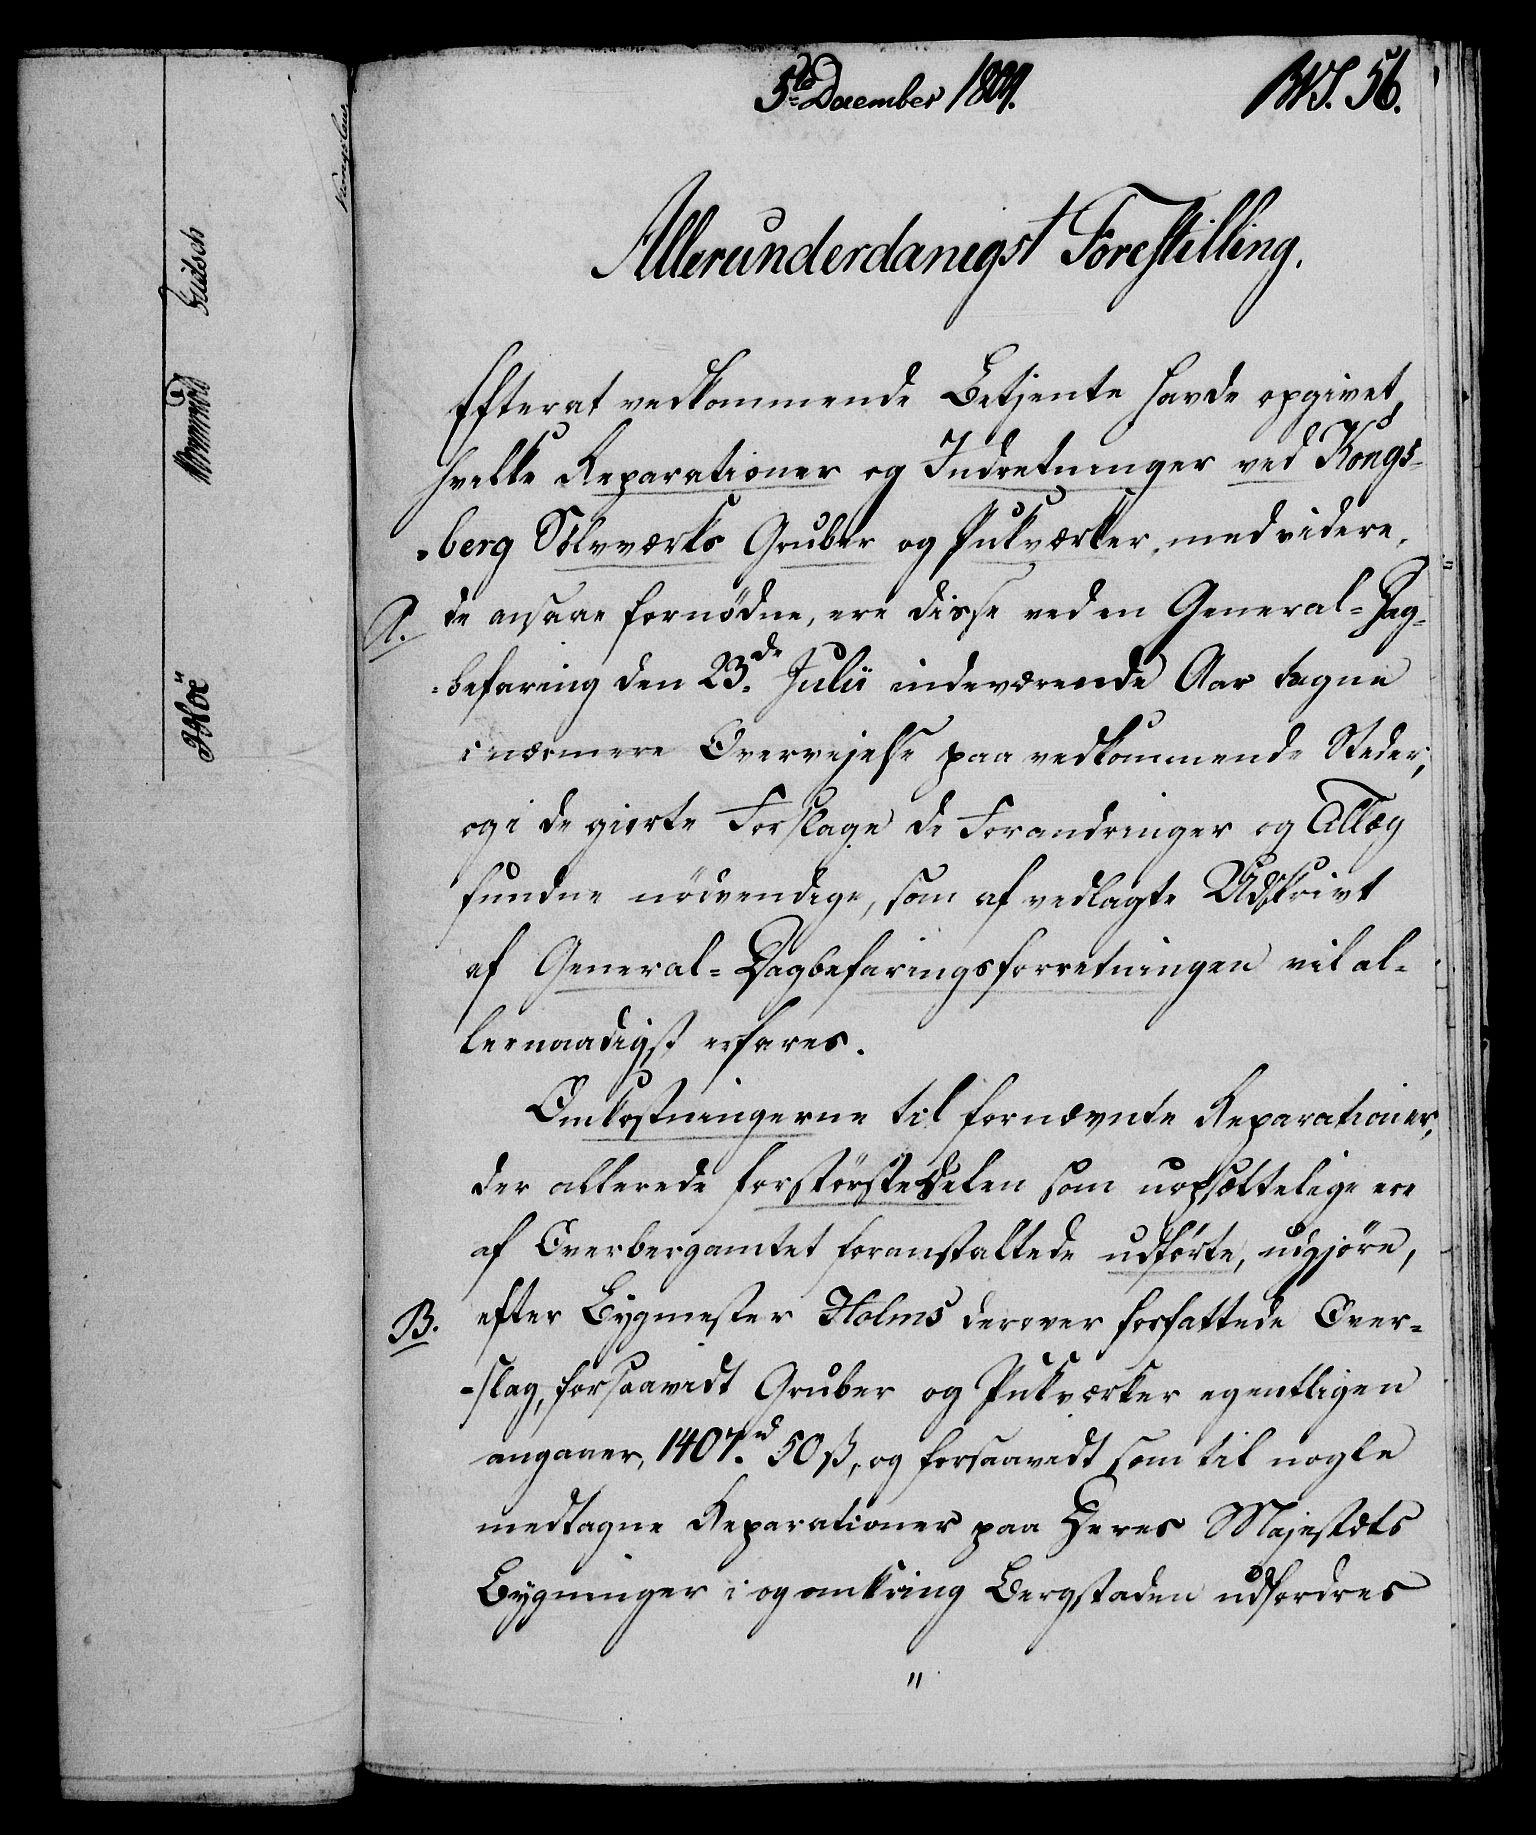 5te December 1809.
No. 56.
Allerunderdanigst Forestilling.
Efterat vedkommende Betjente havde opgivet,
hvilke Reparationer og Indretninger ved Kongs-
-berg Sølvværks Gruber og Pukværker, med videre,
A. de ansaae fornødne, ere disse ved en General-Dag-
-befaring den 23de Julii indeværende Aar tagne
i nærmere Overvejelse paa vedkommende Steder,
og i de giorte Forslage de Forandringer og Tillæg
fundne nödvendige, som af vedlagte Udskrivt
af General-Dagbefaringsforretningen vil al-
lernaadigst erfares.
Omkostningerne til fornævnte Reparationer,
der allerede forstörstedelen som uopsættelige ere
af Overbergamtet foranstaltede udförte, udgjöre,
B. efter Bygmester Holms derover forfattede Over-
-slag, forsaavidt Gruber og Pukværker egentligen
angaaer, 1407 rd 50 ß, og forsaavidt som til nogle
medtagne Reparationer paa Deres Majestæts
Bygninger i og omkring Bergstaden udfordres
"